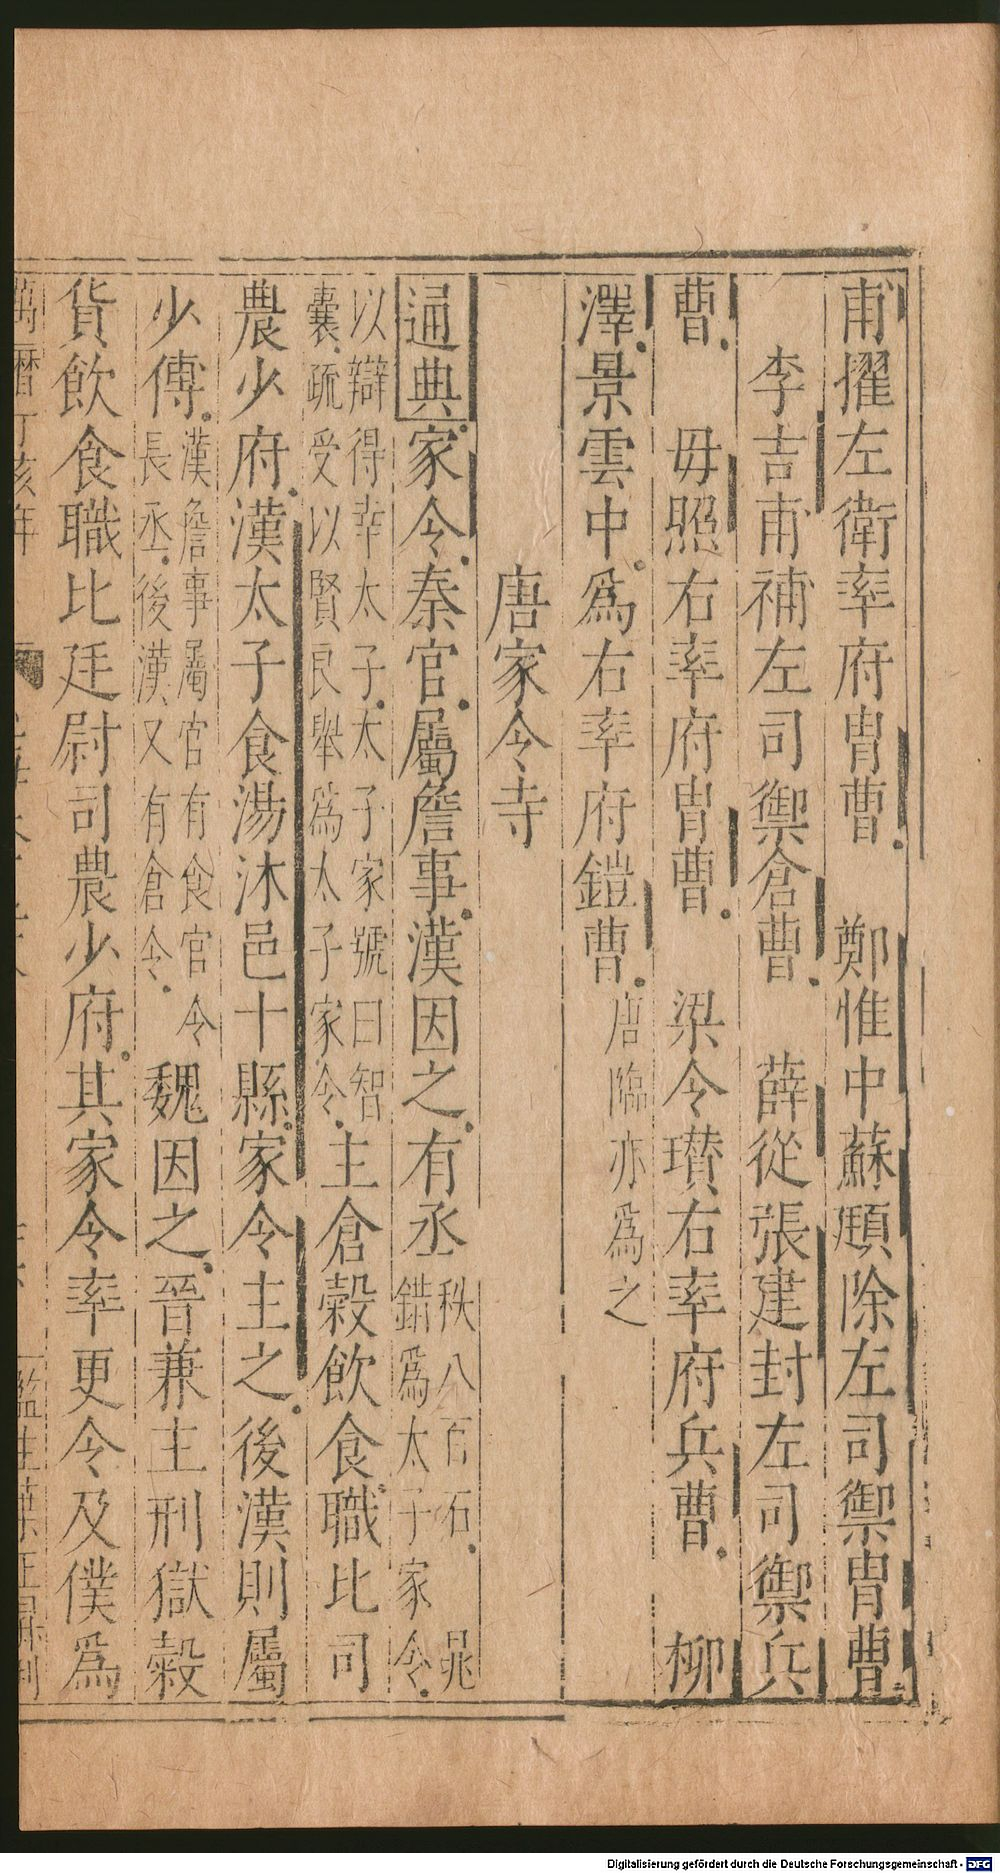 甫擢左衛率府胄曹　鄭惟中蘇頲除左司禦胄曹
李吉甫補左司禦倉曹　薛從張建封左司禦兵
曹　毋照右率府胄曹　梁令瓚右率府兵曹　柳
澤景雲中爲右率府鎧曹唐臨亦爲之
唐家令寺
通典家令秦官屬詹事漢因之有丞秩八百石晁錯爲太子家令
以辯得幸太子太子家號曰智囊疏受以賢良舉爲太子家令主倉穀飲食職比司
農少府漢太子食湯沐邑十縣家令主之後漢則屬
少傅漢詹事屬官有食官令長丞後漢又有倉令魏因之晉兼主刑獄穀
貨飲食職比廷尉司農少府其家令率更令及僕爲
萬曆丁亥年
Digitalisierung gefördert durch die Deutsche Forschungsgemeinschaft - DFG